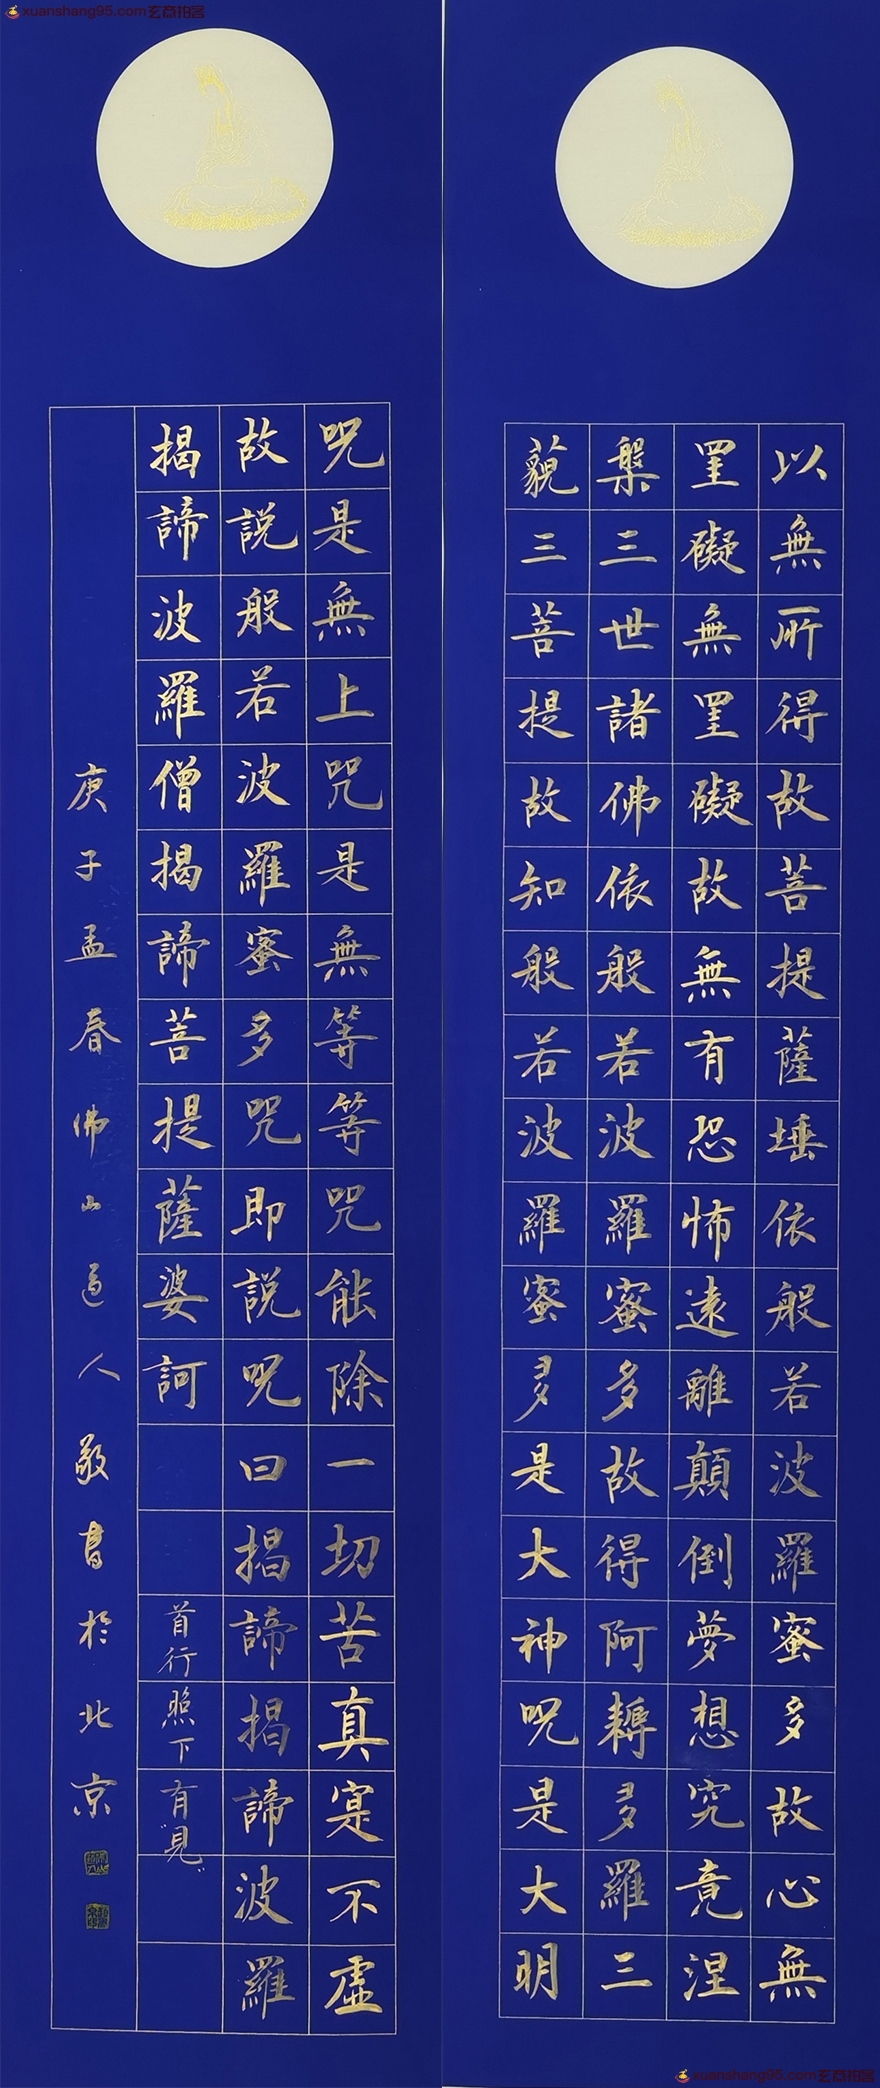 xuanshang95.com玄商拍客
以無所得故菩提薩埵依般若波羅蜜多故心無
罣礙無罣礙故無有恐怖遠離顛倒夢想究竟涅
槃三世諸佛依般若波羅蜜多故得阿耨多羅三
藐三菩提故知般若波羅蜜多是大神咒是大明
咒是無上咒是無等等咒能除一切苦真寔不虛
故説般若波羅蜜多咒即説咒曰揭諦揭諦波羅
揭諦波羅僧揭諦菩提薩婆訶
首行照下有見
庚子孟春佛山道人敬書於北京
xuanshang95.com玄商拍客